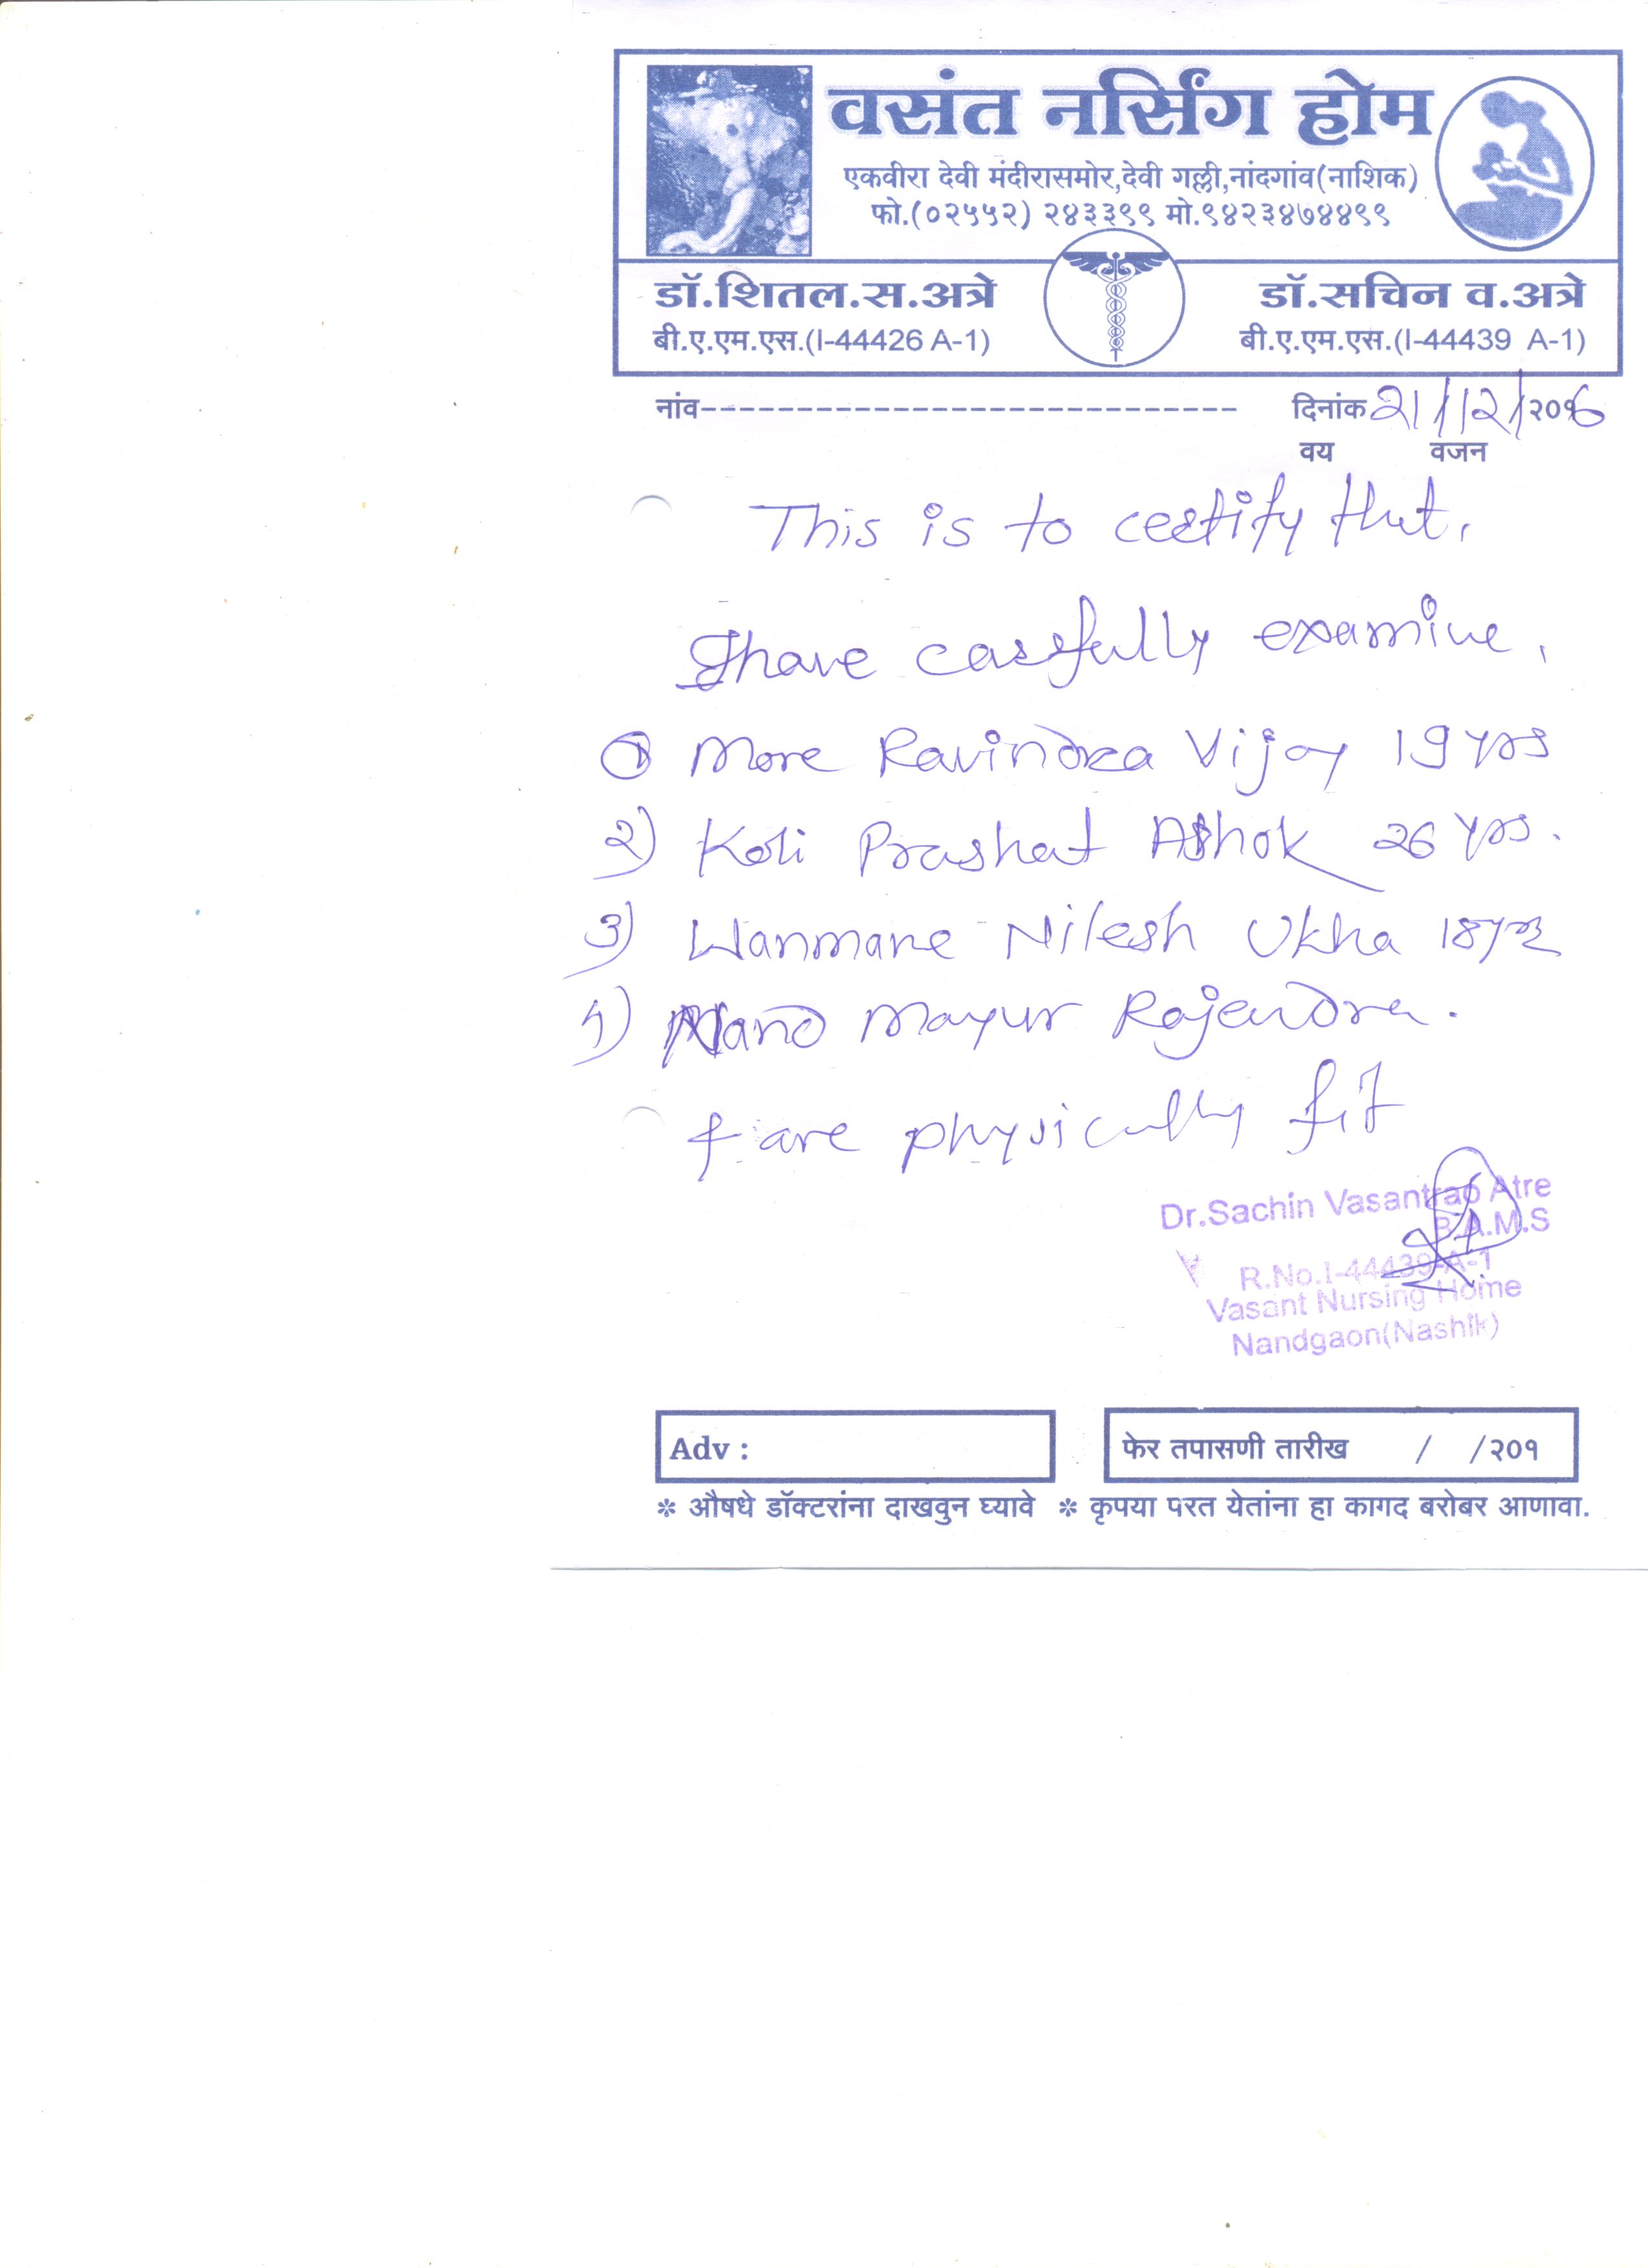 वसंत नर्सिंग होम
एकवीरा देवी मंदीरासमोर,देवी गल्ली,नांदगांव(नाशिक)
फो.(०२५५२) २४३३९९ मो.९४२३४७४४९९
डॉ.शितल.स.अत्रे
बी.ए.एम.एस.(I-44426 A-1)
डॉ.सचिन व.अत्रे
बी.ए.एम.एस.(I-44439 A-1)
नांव--------------------------- दिनांक 21/12/२०१6
वय वजन
This is to certify that,
I have carefully examine,
① More Ravindra Vijay 19 yrs
2) Koli Prashat Ashok 26 yrs.
3) Wanmane Nilesh Ukha 18 yrs
4) Nand Mayur Rajendra.
& are physically fit
Dr.Sachin Vasantrao Atre
B.A.M.S
R.No.I-44439-A-1
Vasant Nursing Home
Nandgaon(Nashik)
Adv :
फेर तपासणी तारीख / /२०१
* औषधे डॉक्टरांना दाखवुन घ्यावे * कृपया परत येतांना हा कागद बरोबर आणावा.